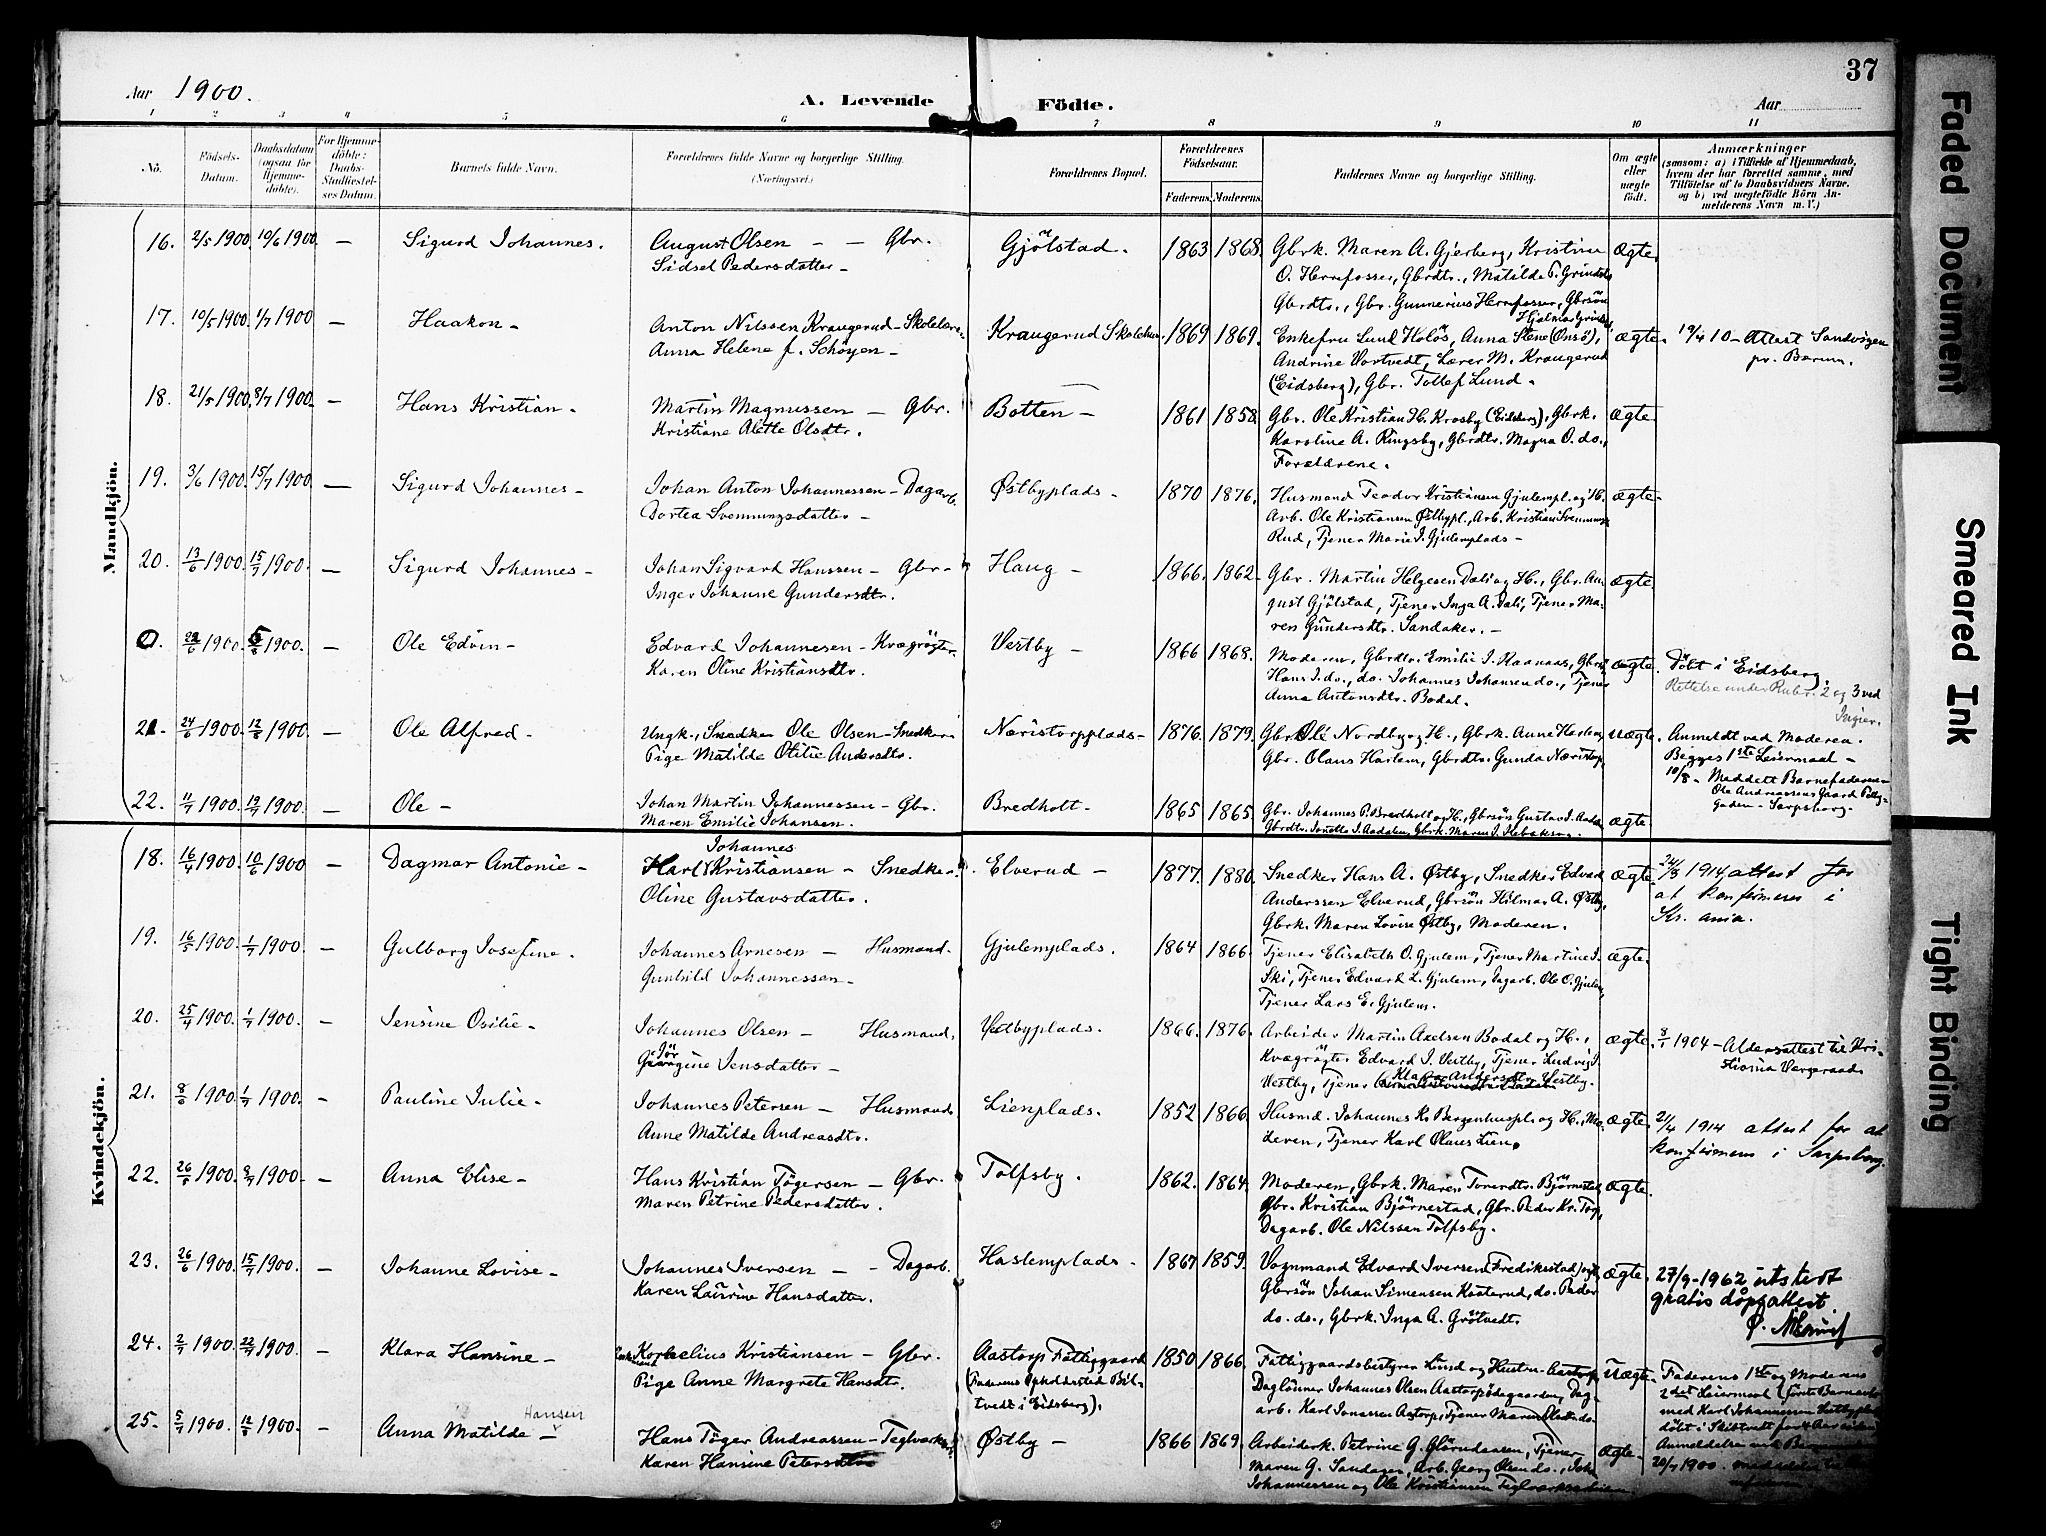 37
Aar 1900.
A. Levende Födte.
Aar
1 2 3 4 5 6 7 8 9 10 11
No.
Födsels-Datum.
Daabsdatum (ogsaa for Hjemmedöbte).
For Hjemmedöbte: Daabs-Stadfæstelses Datum.
Barnets fulde Navn.
Forældrenes fulde Navne og borgerlige Stilling. (Næringsvei.)
Forældrenes Bopæl.
Forældrenes Födselsaar. Faderens. Moderens.
Faddernes Navne og borgerlige Stilling.
Om ægte eller uægte födt.
Anmærkninger
(saasom: a) i Tilfælde af Hjemmedaab, hvem der har forrettet samme, med Tilföielse af to Daabsvidners Navne. og b) ved uægtefödte Börn Anmelderens Navn m. V.)
Mandkjön.
16. 2/5 1900. 10/6 1900. — Sigurd Johannes. August Olsen — — Gbr. Gjölstad. 1863 1868. Gbrk. Maren A. Gjerberg, Kristine ægte.
Sidsel Pedersdatter — O. Herrefosser, Gbrdtr., Matilde P.
Gbrdtr., Gbr. Gunnerius Herrefosser, Gbrsön
17. 10/5 1900. 1/7 1900 — Haakon — Anton Nilssen Kraugerud — Kraugerud 1869 1869. Enkefru Lund Holös, Anna Stene (Onsö), ægte. 19/4 10 — Attest Sandvigen
Anna Helene f. Schöyen — Andrine Vortvedt, Lærer M. Kraugerud pr. Bærum.
(Eidsberg), Gbr. Tollef Lund.
18. 21/5 1900. 8/7 1900. — Hans Kristian — Martin Magnussen — Gbr. Botten — 1861 1858. Gbr. Ole Kristian H. Krosby (Eidsberg), Gbrk. ægte.
Kristiane Alette Olsdtr. Karoline A. Ringsby, Gbrdtr. Magna O. do.,
Forældrene.
19. 3/6 1900. 15/7 1900. — Sigurd Johannes — Johan Anton Johannessen — Dagarb. Østbyplads. 1870 1876. Husmand Teodor Kristiansen Gjulempl. og H. ægte.
Dortea Svenningsdatter — Arb. Ole Kristiansen Østbypl., Arb. Kristian
Rud, Tjener Marie J. Gjulemplads —
20. 13/6 1900. 15/7 1900. — Sigurd Johannes — Johan Sigvard Hanssen — Gbr. — Haug — 1866. 1862. Gbr. Martin Helgesen Dali og H., Gbr. Au- ægte.
Inger Johanne Gundersdtr. gust Gjölstad, Tjener Inga A. Dali, Tjener Ma-
ren Gundersdtr. Sandaker. —
0. 1900. 1900. — Ole Edvin — Edvard Johannesen — Kvægrögter. Vestby — 1866 1868. Moderen, Gbrdtr. Emilie J. Raanaas, ægte. Döbt i Eidsberg.
Karen Oline Kristiansdtr. Hans J. do., do. Johannes Johansen do., Tjener Rettelse under Rubr. 2 og 3 ved
Anna Antonsdtr. Bodal. Ingier.
21. 24/6 1900. 12/8 1900. — Ole Alfred — Ungk., Snedker Ole Olsen — Snedker Næristorpplads — 1876. 1879. Gbr. Ole Nordby og H., Gbrk. Anne Harlem, uægte. Anmeldt ved Moderen.
Pige Matilde Otilie Andersdtr. Gbr. Olaus Harlem, Gbrdtr. Gunda Næristorp. Begges 1ste Leiermaal —
10/8 — Meddelt Barnefaderen —
22. 11/7 1900. 19/7 1900. — Ole — Johan Martin Johannessen — Gbr. Bredholt — 1865 1865. Gbr. Johannes P. Bredholt og H., Gbrsön Gustav J. Aadalen ægte.
Maren Emilie Johansen. Gbrdtr. J. Aadalen, Gbrk. Maren J. Sarpsborg.
Kvindekjön.
18. 16/4 1900. 10/6 1900 — Dagmar Antonie — Karl Johannes Kristiansen — Snedker. Elverud — 1877. 1880. Snedker Hans A. Østby, Snedker Edvard ægte. 24/3 1914, attest for
Oline Gustavsdatter. Anderssen Elverud, Gbrsön Hilmar A. Østby, at konfirmeres i
Gbrk. Maren Lovise Østby, Moderen. Kr.ania.
19. 16/5 1900. 1/7 1900. — Gulborg Josefine. Johannes Arnesen — Husmand. Gjulemplads. 1864 1866. Tjener Elisabeth O. Gjulem, Tjener Martine J. ægte.
Gunhild Johannessen — Ski, Tjener Edvard L. Gjulem, Dagarb. Ole O. Gjulem,
Tjener Lars E. Gjulem.
20. 25/4 1900. 1/7 1900. — Jensine Osilie — Johannes Olsen — Husmand. Vestbyplads. 1866. 1876. Arbeider Martin Axelsen Bodal og H., ægte. 8/1 1904 — Aldersattest til Kri-
Jörgine Jensdatter — Kvægrögter Edvard J. Vestby, Tjener Ludvig J.
Vestby, Tjener Klara Andersdtr. Vestby.
21. 8/6 1900. 1/7 1900. — Pauline Julie — Johannes Petersen — Husmand Lienplads. 1852 1866. Husmd. Johannes K. og H., Mo- ægte. 21/4 1914 attest for at
Anne Matilde Andreasdtr. deren, Tjener Karl Olaus Lien. konfirmeres i Sarpsborg.
22. 26/5 1900. 8/7 1900. — Anna Elise — Hans Kristian Tögersen — Gbr. Tolfsby. 1862. 1864. Moderen, Gbrk. Maren Torerdtr. Björnestad, ægte.
Maren Petrine Pedersdatter. Gbr. Kristian Björnestad, Gbr. Peder Kr. Torp,
Dagarb. Ole Nilssen Tolfsby.
23. 26/6 1900. 15/7 1900. — Johanne Lovise — Johannes Iversen — — Dagarb. Haslemplads. 1867 1859. Vognmand Edvard Iversen (Fredriksstad) og H., ægte. 27/9-1962 utstedt
Karen Laurine Hansdatter. Gbrsön Johan Simensen Kosterud, do. Peder gratis dåpsattest.
do. do., Gbrk. Inga A. Grötvedt.
24. 2/7 1900. 22/7 1900. — Klara Hansine — Kornelius Kristiansen — Gbr. Aastorp Fattiggaard 1850 1866. Fattiggaardsbestyrer Lund og Hustru Aastorp, uægte. Faderens 1ste og Moderens
Pige Anne Margrete Hansdtr. (Faderens Opholdssted tvedt i Eidsberg). Daglönner Johannes Olsen Aastorpödegaarden, Dag- 2det Leiermaal
arb. Karl Jonassen Aastorp, Tjener Maren do. med Karl Johannesen
25. 5/7 1900. 12/8 1900. — Anna Matilde — Hansen Hans Töger Andreassen — Østby — 1866 1869. Arbeiderk. Petrine G. Tjener ægte. Anmeldelse
Karen Hansine Petersdtr. Maren G. Sandager, Arb. Georg Olsen do., 20/7 1900.
Johannessen og Ole Kristiansen
Faded Document
Smeared Ink
Tight Binding